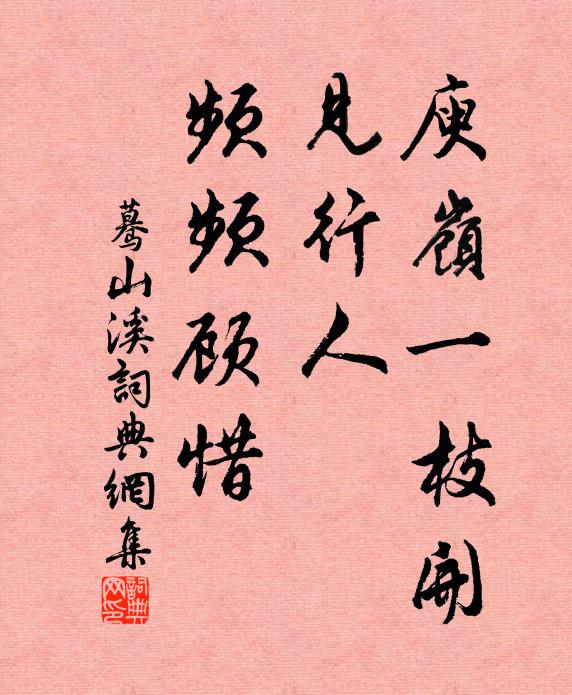 庾嶺一枝開
見行人
頻頻顧惜
驀山溪詞典網集
詞典网印